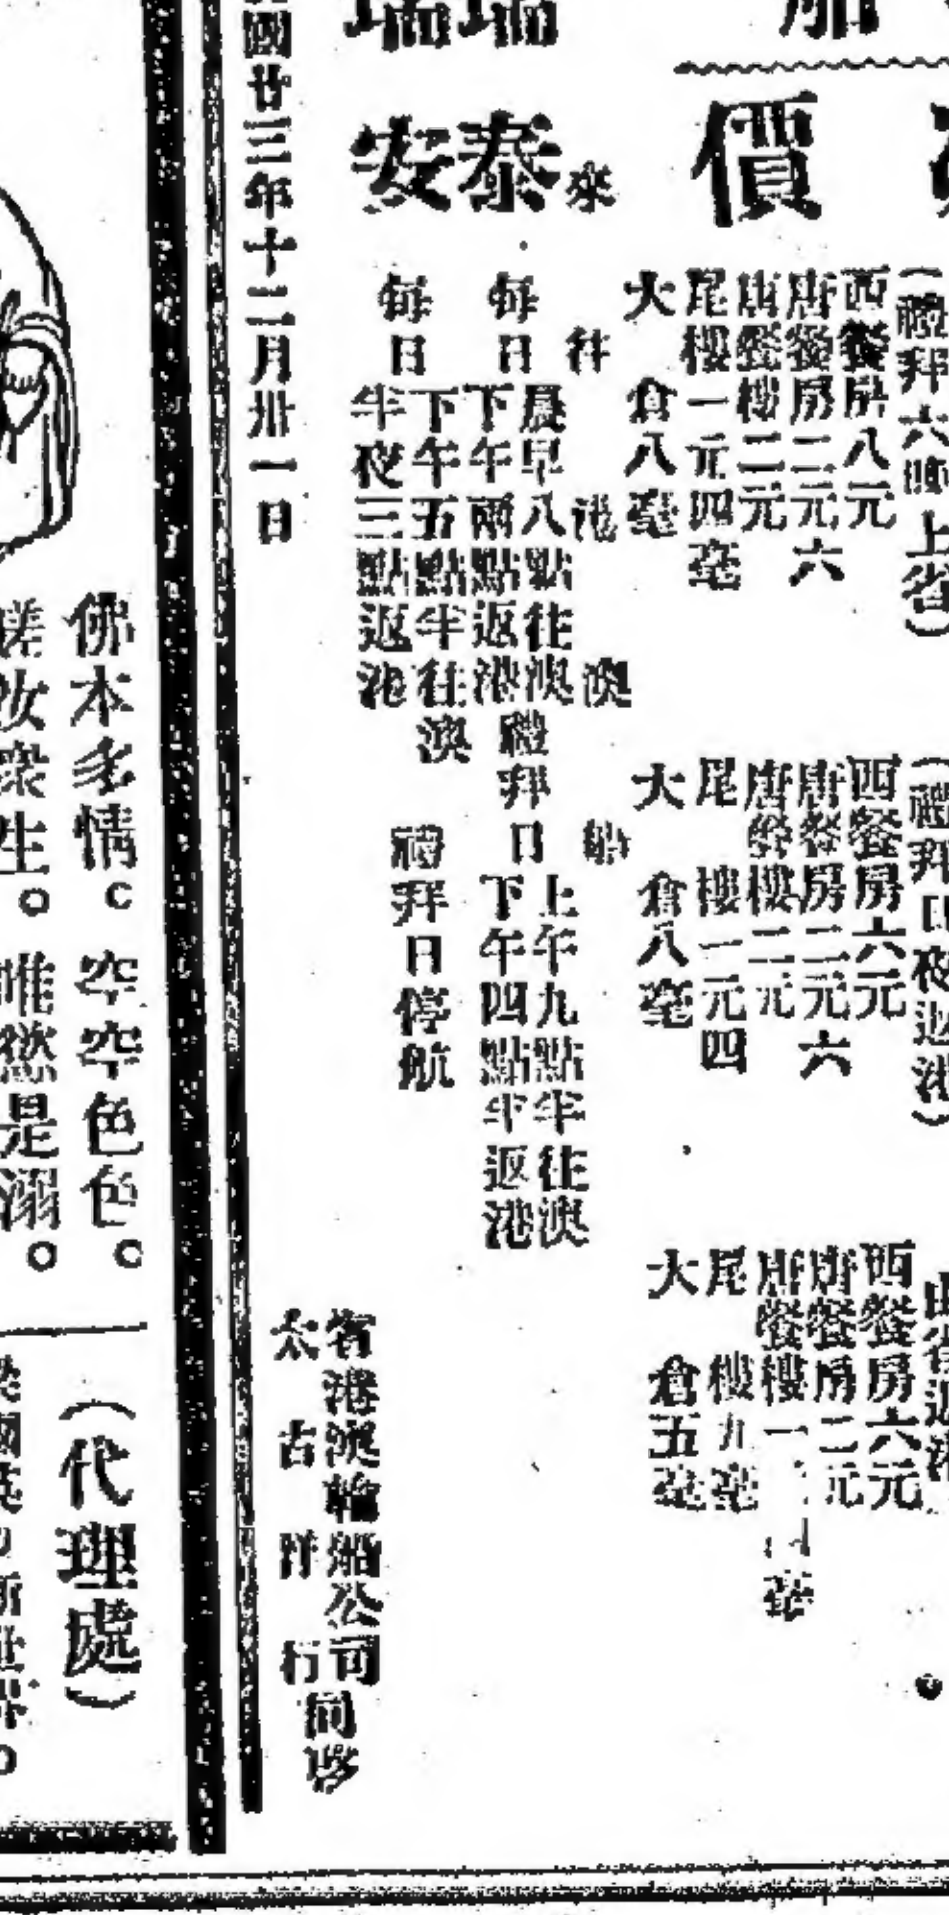 價
(禮拜六晚上省)
西餐房八元
唐餐房二元六
唐餐樓二元
尾樓一元四毫
大倉八毫
(禮拜日夜返港)
西餐房六元
唐餐房二元六
唐餐樓二元
尾樓一元四
大倉八毫
由省返港
西餐房六元
唐餐房二元
唐餐樓一
毫
尾樓九毫
大倉五毫
來往港澳船
瑞泰
每日晨早八點往澳
下午兩點返港
禮拜日上午九點半往澳
下午四點半返港
瑞安
每日下午五點半往澳
半夜三點返港
禮拜日停航
省港澳輪船公司
太古洋行
同啓
國廿三年十二月卅一日
佛本多情。空空色色。
嗟汝衆生。唯慾是溺。
(代理處)